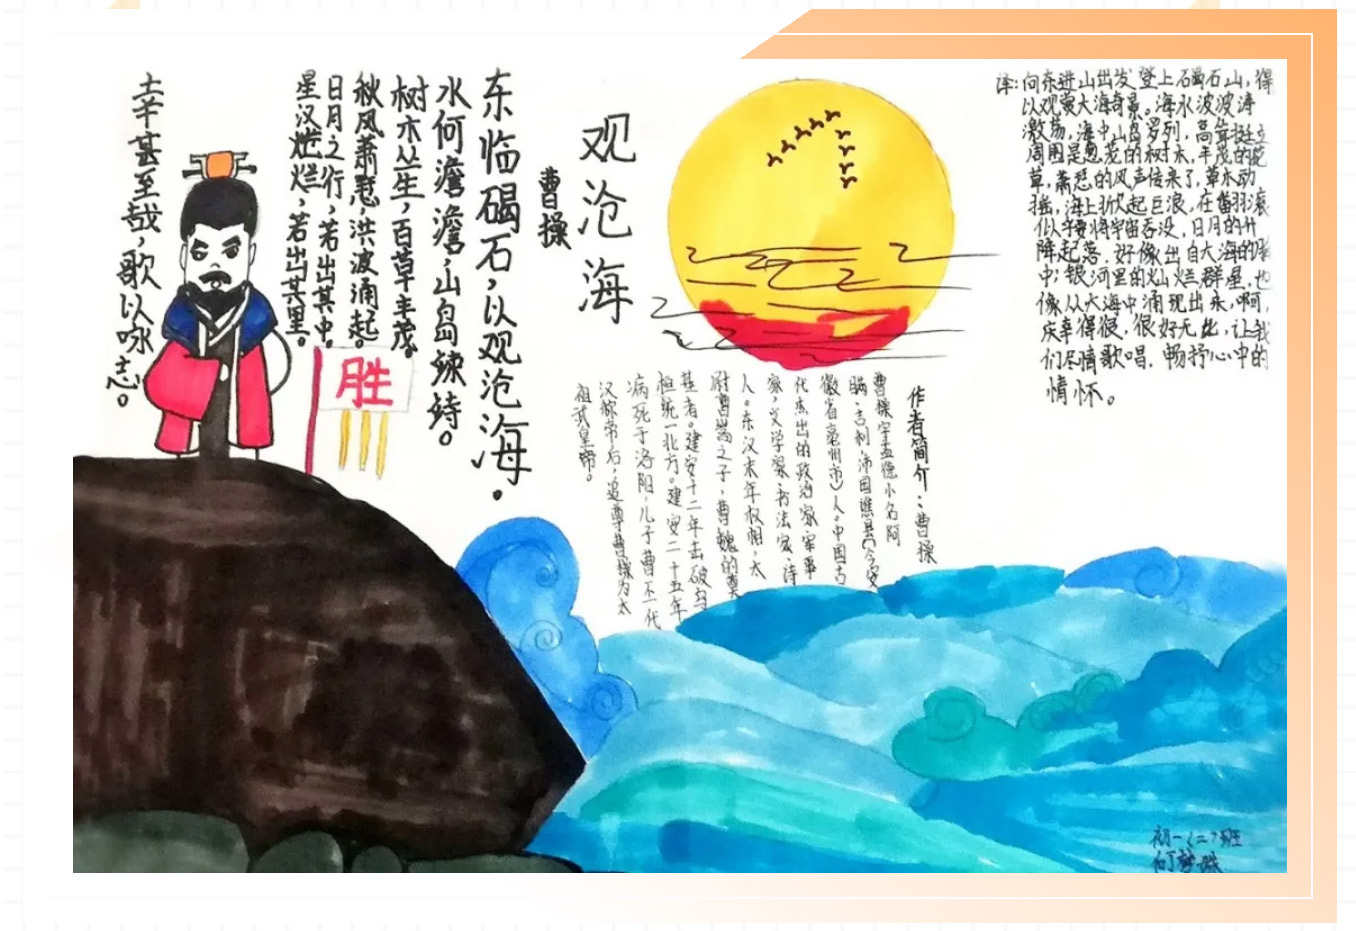 观沧海
曹操
东临碣石，以观沧海。
水何澹澹，山岛竦峙。
树木丛生，百草丰茂。
秋风萧瑟，洪波涌起。
日月之行，若出其中。
星汉灿烂，若出其里。
幸甚至哉，歌以咏志。
胜
译：向东进山出发登上碣石山，得
以观赏大海奇景。海水波波涛
激荡，海中山岛罗列，高耸挺立
周围是葱茏的树木，丰茂的花
草，萧瑟的风声传来了，草木动
摇，海上掀起巨浪，在翻羽滚
似乎要将宇宙吞没，日月的升
降起落，好像出自大海的胸
中；银河里的灿烂群星，也
像从大海中涌现出来，啊，
庆幸得很，很好无比，让我
们尽情歌唱，畅抒心中的
情怀。
作者简介：曹操
曹操字孟德小名阿
瞒、吉利，沛国谯县（今安
徽省亳州市）人。中国古
代杰出的政治家军事
家，文学家，书法家，诗
人。东汉末年权相，太
尉曹嵩之子，曹魏的奠
基者。建安十二年击破乌
桓统一北方。建安二十五年
病死于洛阳，儿子曹丕代
汉称帝后，追尊曹操为太
祖武皇帝。
初一〈二〉班
何梦